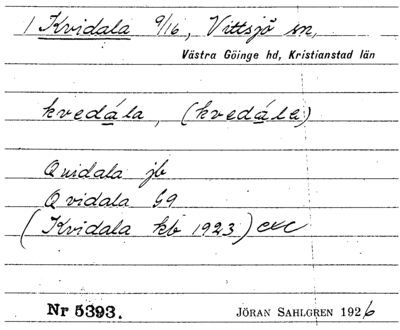 1 Kvidala 9/16, Vittsjö sn,
Västra Göinge hd, Kristianstad län
kvedála, (kvedála)
Quidala jb
Qvidala G9
(Kvidala kb 1923)
Nr 5393. JÖRAN SAHLGREN 1926